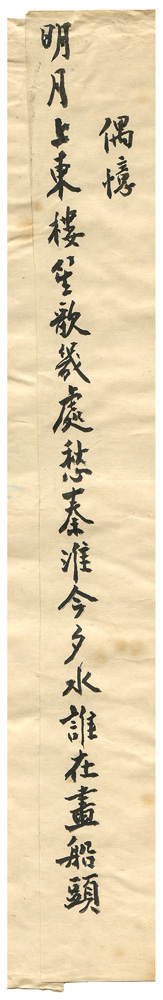 偶憶
明月上東樓笙歌幾處愁秦淮今夕水誰在畫船頭